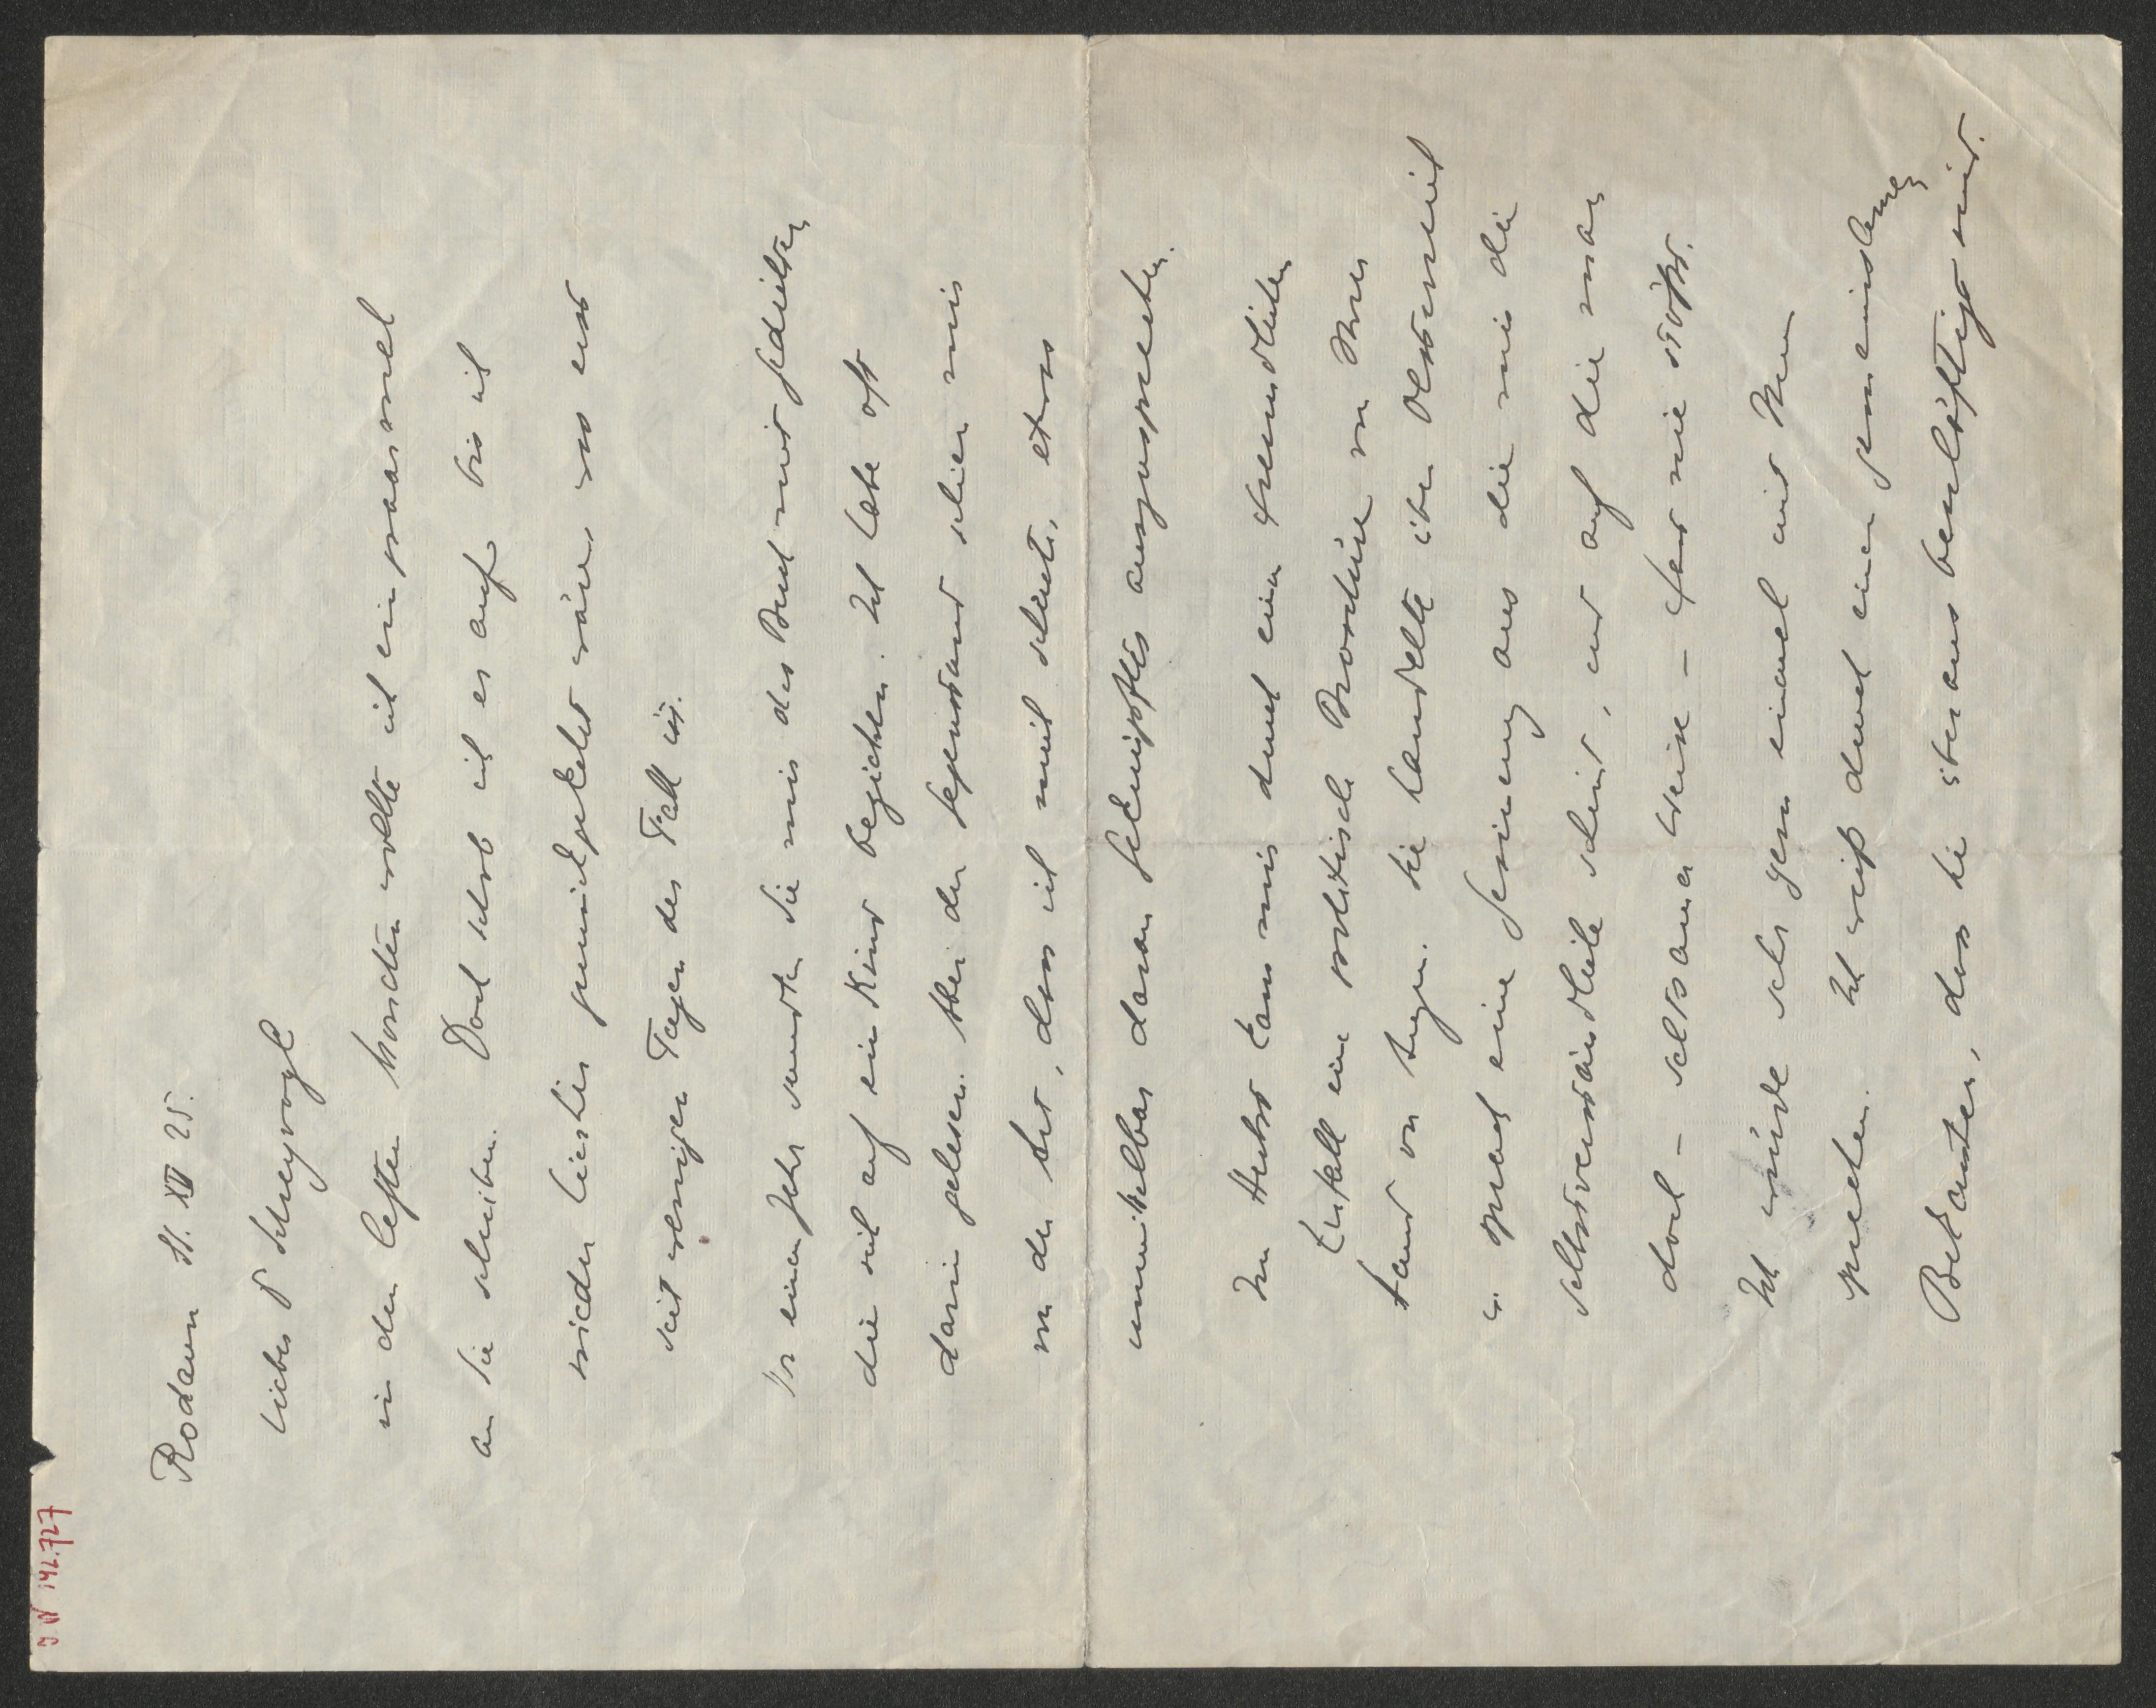 J. N 142.727
Rodaun 31. XII 25.
lieber Dr Schreyvogl
in den letzten Monaten wollte ich ein paarmal
an Sie schreiben. Doch schob ich es auf bis ich
wieder hierher zurückgekehrt wäre, was erst
seit wenigen Tagen der Fall ist.
Vor einem Jahr sandten Sie mir das Buch mit Gedichten
die sich auf ein Kind beziehen. Ich habe oft
darin gelesen. Aber der Gegenstand schien mir
von der Art, dass ich mich scheute, etwas
unmittelbar daran Geknüpftes auszusprechen.
Im Herbst kam mir durch einen freundlichen
Zufall eine politische Broschüre von Ihrer
Hand vor Augen. Sie handelte über Österreich
es sprach eine Gesinnung aus die mir die
selbstverständliche scheint, und auf die man
doch – seltsamer Weise – fast nie stößt.
Ich würde sehr gern einmal mit Ihnen
sprechen. Ich weiß durch einen gemeinsamen
Bekannten, dass Sie überaus beschäftigt sind.